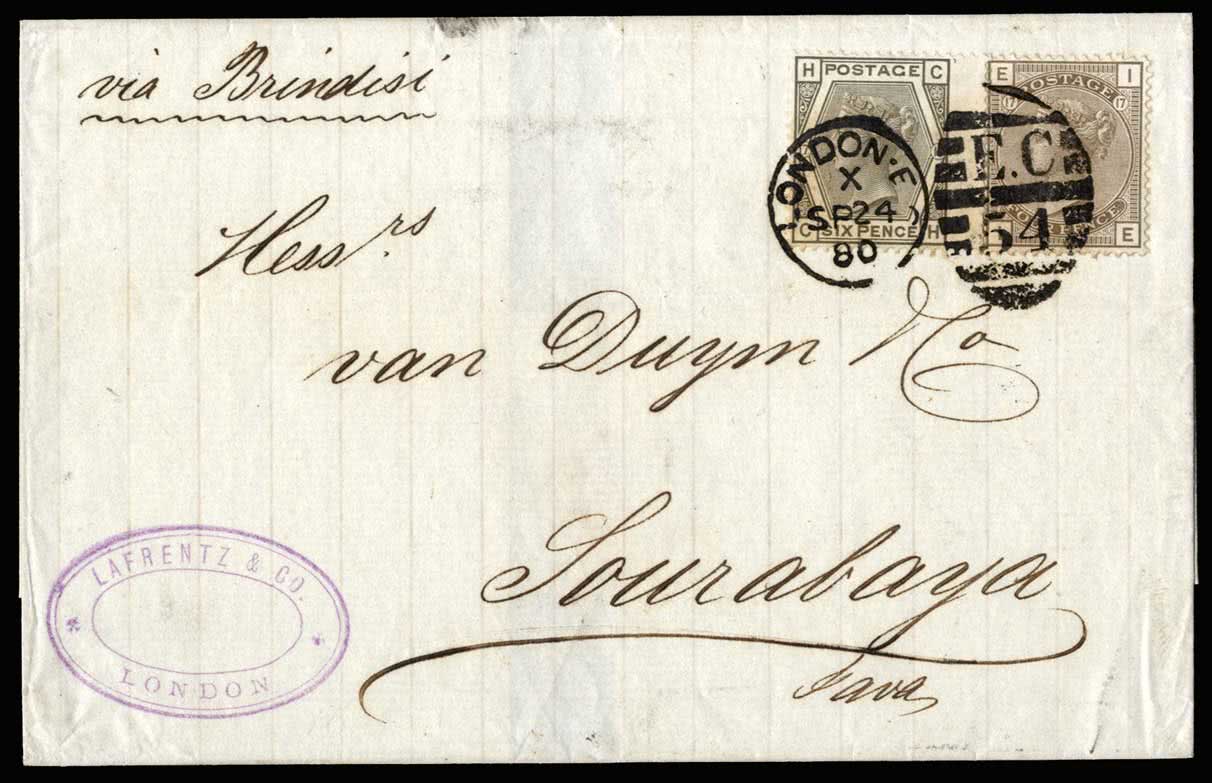 via Brindisi
H POSTAGE C
C SIX PENCE H
E I
POSTAGE
17 17
PENCE
E
LONDON·E
X
SP 24
80
E.C
54
Mess.rs
van Duym & Co
Sourabaya
Java
LAFRENTZ & CO.
LONDON